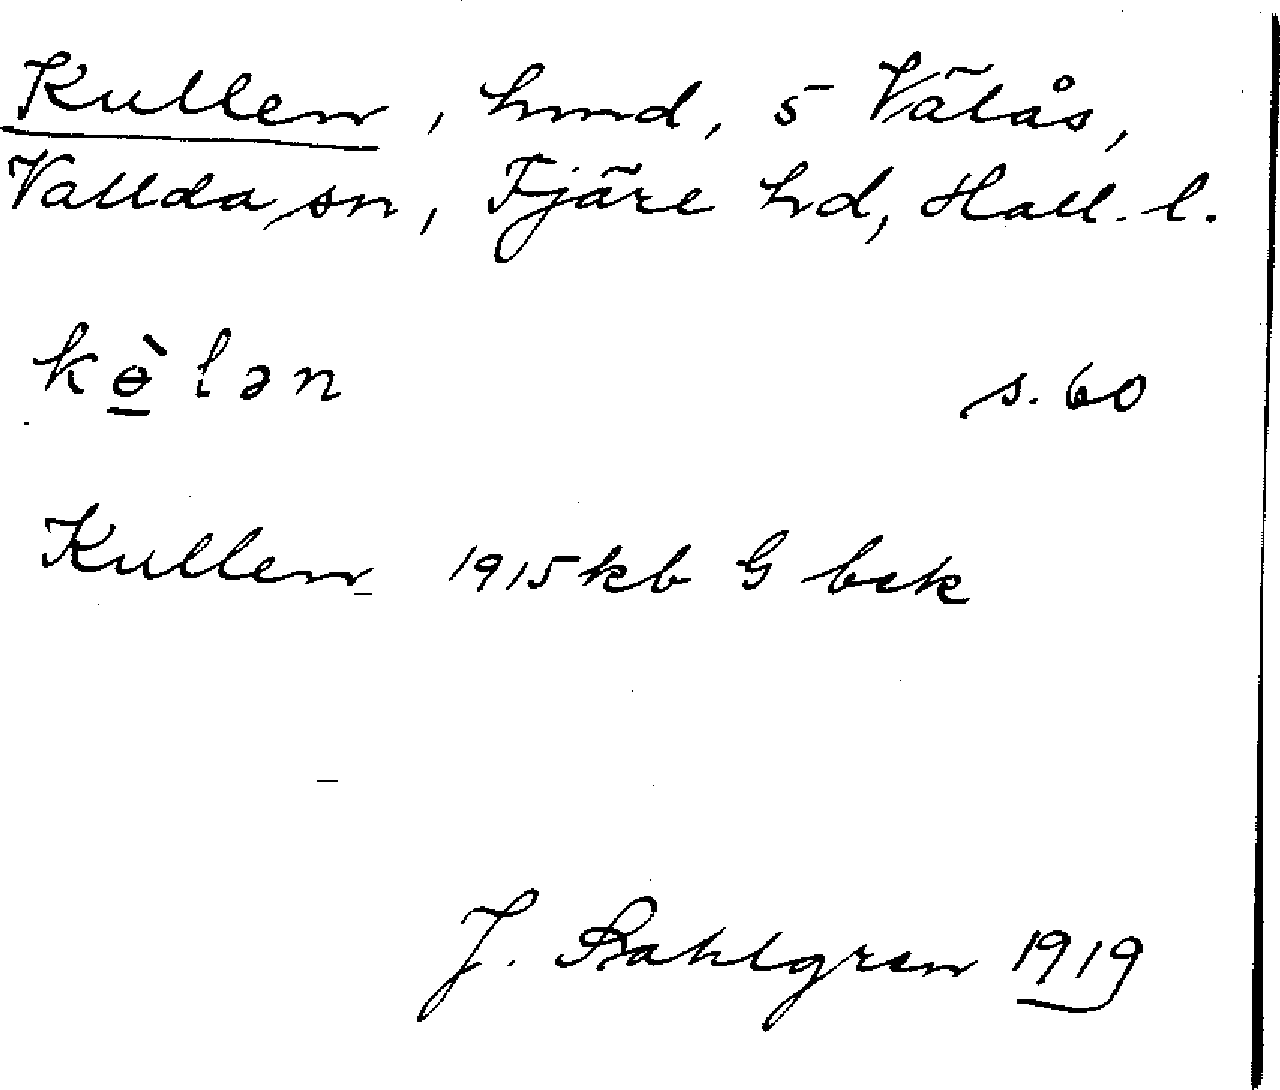 Kullen, hmd, 5 Välås,
Vallda sn, Fjäre hd, Hall. l.
kɵ̠̀lən s. 60
Kullen 1915 kb G bsk
J. Sahlgren 1919